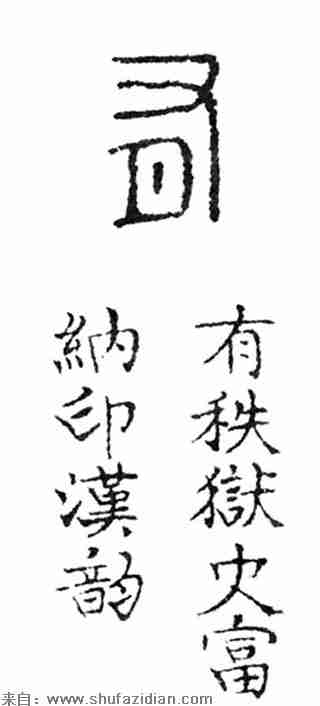 有
有秩獄史富
納印漢韵
来自：www.shufazidian.com